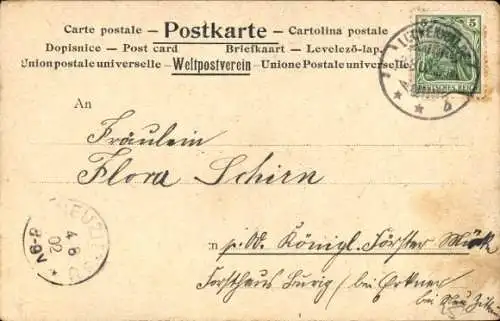 Carte postale – Postkarte – Cartolina postale
Dopisnice – Post card Briefkaart – Levelező-lap
Union postale universelle – Weltpostverein – Unione Postale universelle
5
LUCKENWALDE
DEUTSCHES REICH
* * b
An
Fräulein
Flora Schirn
in p. Ad. Königl. Förster
Forsthaus Burig (bei Erkner
bei Neu Zitt
NEUZITTAU
4 8
02
8-9V
*